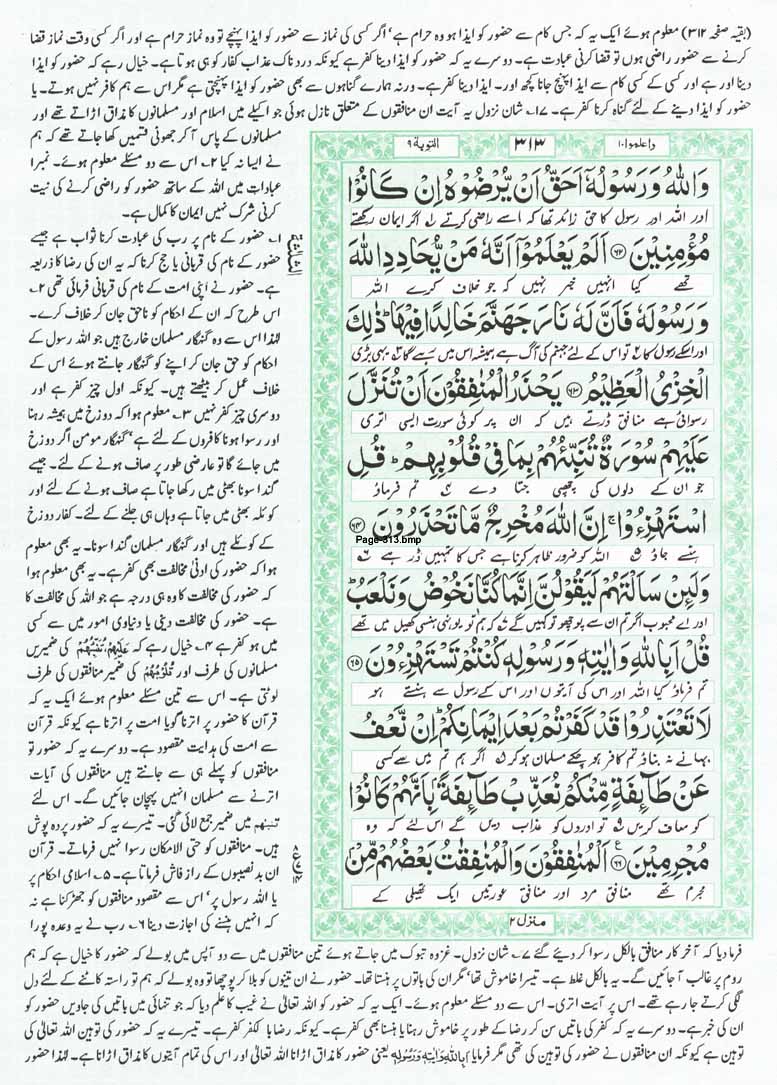 (بقیہ صفحہ ۳۱۲) معلوم ہوئے ایک یہ کہ جس کام سے حضور کو ایذا ہو وہ حرام ہے' اگر کسی کی نماز سے حضور کو ایذا پہنچے تو وہ نماز حرام ہے اور اگر کسی وقت نماز قضا
کرنے سے حضور راضی ہوں تو قضا کرنی عبادت ہے۔ دوسرے یہ کہ حضور کو ایذا دینا کفر ہے کیونکہ دردناک عذاب کفار کو ہی ہوتا ہے۔ خیال رہے کہ حضور کو ایذا
دینا اور ہے اور کسی کے کسی کام سے ایذا پہنچ جانا کچھ اور۔ ایذا دینا کفر ہے۔ ورنہ ہمارے گناہوں سے بھی حضور کو ایذا پہنچتی ہے مگر اس سے ہم کافر نہیں ہوتے۔ یا
حضور کو ایذا دینے کے لئے گناہ کرنا کفر ہے۔ ۱۷۔ شان نزول یہ آیت ان منافقوں کے متعلق نازل ہوئی جو اکیلے میں اسلام اور مسلمانوں کا مذاق اڑاتے تھے اور
مسلمانوں کے پاس آ کر جھوٹی قسمیں کھا جاتے تھے کہ ہم
نے ایسا نہ کیا ۲۔ اس سے دو مسئلے معلوم ہوئے۔ نمبرا
عبادات میں اللہ کے ساتھ حضور کو راضی کرنے کی نیت
کرنی شرک نہیں ایمان کا کمال ہے۔
۱۔ حضور کے نام پر رب کی عبادت کرنا ثواب ہے جیسے
حضور کے نام کی قربانی یا حج کرنا کہ یہ ان کی رضا کا ذریعہ
ہے۔ حضور نے اپنی امت کے نام کی قربانی فرمائی تھی ۲۔
اس طرح کہ ان کے احکام کو ناحق جان کر خلاف کرے۔
لہٰذا اس سے وہ گنہگار مسلمان خارج ہیں جو اللہ رسول کے
احکام کو حق جان کر اپنے کو گنہگار جانتے ہوئے اس کے
خلاف عمل کر بیٹھتے ہیں۔ کیونکہ اول چیز کفر ہے اور
دوسری چیز کفر نہیں ۳۔ معلوم ہوا کہ دوزخ میں ہمیشہ رہنا
اور رسوا ہونا کافروں کے لئے ہے' گنہگار مومن اگر دوزخ
میں جائے گا تو عارضی طور پر صاف ہونے کے لئے۔ جیسے
گندا سونا بھٹی میں رکھا جاتا ہے صاف ہونے کے لئے اور
کوئلہ بھٹی میں جاتا ہے وہاں ہی جلنے کے لئے۔ کفار دوزخ
کے کوئلے ہیں اور گنہگار مسلمان گندا سونا۔ یہ بھی معلوم
ہوا کہ حضور کی ادنیٰ مخالفت بھی کفر ہے۔ یہ بھی معلوم ہوا
کہ حضور کی مخالفت کا وہ ہی درجہ ہے جو اللہ کی مخالفت کا
ہے۔ حضور کی مخالفت دینی یا دنیاوی امور میں سے کسی
میں ہو کفر ہے ۴۔ خیال رہے کہ عَلَيْهِمْ تُنَبِّئُهُمْ کی ضمیریں
مسلمانوں کی طرف اور قُلُوْبِهِمْ کی ضمیر منافقوں کی طرف
لوٹتی ہے۔ اس سے تین مسئلے معلوم ہوئے ایک یہ کہ
قرآن کا حضور پر اترنا گویا امت پر اترنا ہے کیونکہ قرآن
سے امت کی ہدایت مقصود ہے۔ دوسرے یہ کہ حضور تو
منافقوں کو پہلے ہی سے جانتے ہیں منافقوں کی آیات
اترنے سے مسلمان انہیں پہچان جائیں گے۔ اس لئے
میں ضمیر جمع لائی گئی۔ تیسرے یہ کہ حضور پردہ پوش
ہیں۔ منافقوں کو حتی الامکان رسوا نہیں فرماتے۔ قرآن
ان بدنصیبوں کے راز فاش فرماتا ہے۔ ۵۔ اسلامی احکام پر
یا اللہ رسول پر' اس سے مقصود منافقوں کو جھڑکنا ہے نہ
کہ انہیں ہنسنے کی اجازت دینا ۶۔ رب نے یہ وعدہ پورا
الثلثة
واعلموا ۱۰
۳۱۳
التوبة ۹
وَاللّٰهُ وَرَسُوْلُهٗۤ اَحَقُّ اَنْ يُّرْضُوْهُ اِنْ كَانُوْا
اور اللہ اور رسول کا حق زائد تھا کہ اسے راضی کرتے ۱ اگر ایمان رکھتے
مُؤْمِنِيْنَ ۶۲ اَلَمْ يَعْلَمُوْۤا اَنَّهٗ مَنْ يُّحَادِدِ اللّٰهَ
تھے کیا انہیں خبر نہیں کہ جو خلاف کرے اللہ
وَرَسُوْلَهٗ فَاَنَّ لَهٗ نَارَ جَهَنَّمَ خَالِدًا فِيْهَا ؕ ذٰلِكَ
اور اسکے رسول کا ۲ تو اس کے لئے جہنم کی آگ ہے ہمیشہ اس میں رہے گا ۳ یہی بڑی
الْخِزْيُ الْعَظِيْمُ ۶۳ يَحْذَرُ الْمُنٰفِقُوْنَ اَنْ تُنَزَّلَ
رسوائی ہے منافق ڈرتے ہیں کہ ان پر کوئی سورت ایسی اتری
عَلَيْهِمْ سُوْرَةٌ تُنَبِّئُهُمْ بِمَا فِيْ قُلُوْبِهِمْ ؕ قُلِ
جو ان کے دلوں کی چھپی جتا دے ۴ تم فرماؤ
اسْتَهْزِءُوْا ۚ اِنَّ اللّٰهَ مُخْرِجٌ مَّا تَحْذَرُوْنَ ۶۴
ہنسے جاؤ ۵ اللہ کو ضرور ظاہر کرنا ہے جس کا تمہیں ڈر ہے ۶
Page-313.bmp
وَلَئِنْ سَاَلْتَهُمْ لَيَقُوْلُنَّ اِنَّمَا كُنَّا نَخُوْضُ وَنَلْعَبُ ؕ
اور اے محبوب اگر تم ان سے پوچھو تو کہیں گے کہ ہم تو یونہی ہنسی کھیل میں تھے
قُلْ اَبِاللّٰهِ وَاٰيٰتِهٖ وَرَسُوْلِهٖ كُنْتُمْ تَسْتَهْزِءُوْنَ ۶۵
تم فرماؤ کیا اللہ اور اس کی آیتوں اور اس کے رسول سے ہنستے ہو
لَا تَعْتَذِرُوْا قَدْ كَفَرْتُمْ بَعْدَ اِيْمَانِكُمْ ؕ اِنْ نَّعْفُ
بہانے نہ بناؤ تم کافر ہو چکے مسلمان ہو کر اگر ہم تم میں سے کسی
عَنْ طَآئِفَةٍ مِّنْكُمْ نُعَذِّبْ طَآئِفَةًۢ بِاَنَّهُمْ كَانُوْا
کو معاف کریں تو اوروں کو عذاب دیں گے اس لئے کہ وہ
مُجْرِمِيْنَ ۶۶ اَلْمُنٰفِقُوْنَ وَالْمُنٰفِقٰتُ بَعْضُهُمْ مِّنْۢ
مجرم تھے منافق مرد اور منافق عورتیں ایک تھیلی کے
منزل ۲
فرما دیا کہ آخر کار منافق بالکل رسوا کر دیئے گئے ۷۔ شان نزول۔ غزوہ تبوک میں جاتے ہوئے تین منافقوں میں سے دو آپس میں بولے کہ حضور کا خیال ہے کہ ہم
روم پر غالب آ جائیں گے۔ یہ بالکل غلط ہے۔ تیسرا خاموش تھا' مگر ان کی باتوں پر ہنستا تھا۔ حضور نے ان تینوں کو بلا کر پوچھا تو وہ بولے کہ ہم تو راستہ کاٹنے کے لئے دل
لگی کرتے جا رہے تھے۔ اس پر آیت اتری۔ اس سے دو مسئلے معلوم ہوئے۔ ایک یہ کہ حضور کو اللہ تعالیٰ نے غیب کا علم دیا کہ جو تنہائی میں باتیں کی جاویں حضور کو
ان کی خبر ہے۔ دوسرے یہ کہ کفر کی باتیں سن کر رضا کے طور پر خاموش رہنا یا ہنسنا بھی کفر ہے۔ کیونکہ رضا با لکفر کفر ہے۔ تیسرے یہ کہ حضور کی توہین اللہ تعالیٰ کی
توہین ہے کیونکہ ان منافقوں نے حضور کی توہین کی تھی مگر فرمایا اَبِاللّٰهِ وَاٰيٰتِهٖ وَرَسُوْلِهٖ یعنی حضور کا مذاق اڑانا اللہ تعالیٰ اور اس کی تمام آیتوں کا مذاق اڑانا ہے۔ لہٰذا حضور